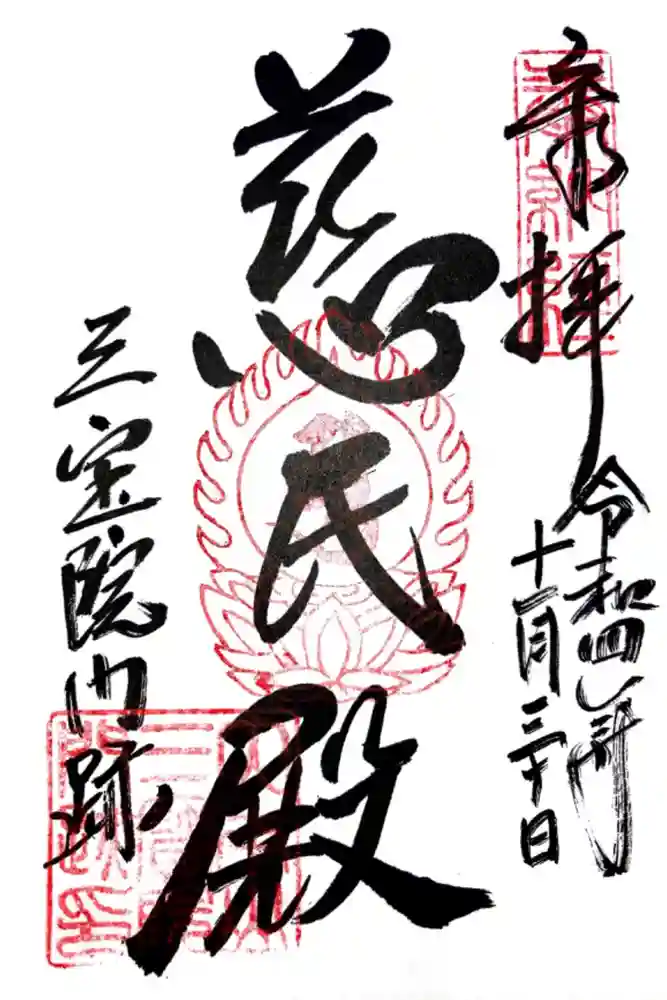 奉拝
令和四年
十一月三十日
慈氏殿
三宝院門跡